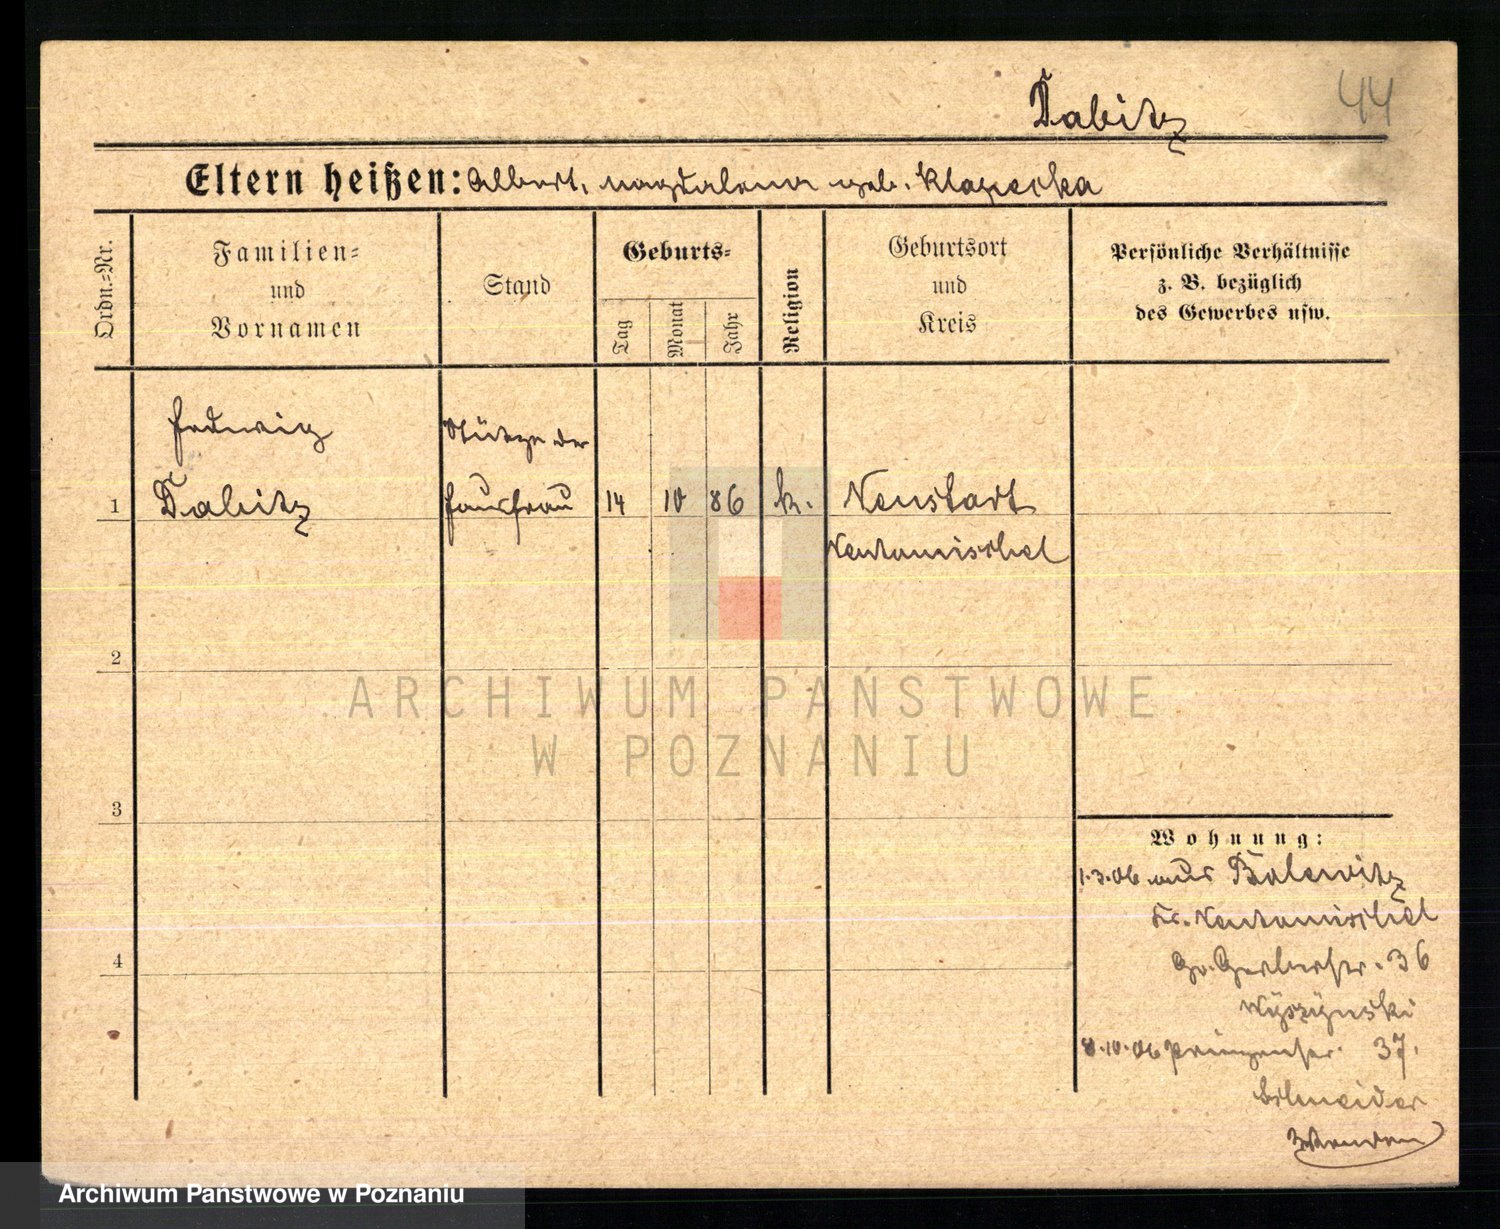 Dabitz
44
Eltern heißen: Albert, Magdalena geb. Klapecka
Ordn.=Nr.
Familien=
und
Vornamen
Stand
Geburts=
Tag
Monat
Jahr
Religion
Geburtsort
und
Kreis
Persönliche Verhältnisse
z. B. bezüglich
des Gewerbes usw.
Hedwig
Stütze der
1 Dabitz Hausfrau 14 10 86 k. Neustadt
Neutomischel
2
3
4
Wohnung:
1.3.06 aus Bolewitz
Kr. Neutomischel
Gr. Gerberstr. 36
Wyszynski
8.10.06 Prinzenstr. 37.
Schneider
Wenden
ARCHIWUM PAŃSTWOWE
W POZNANIU
Archiwum Państwowe w Poznaniu